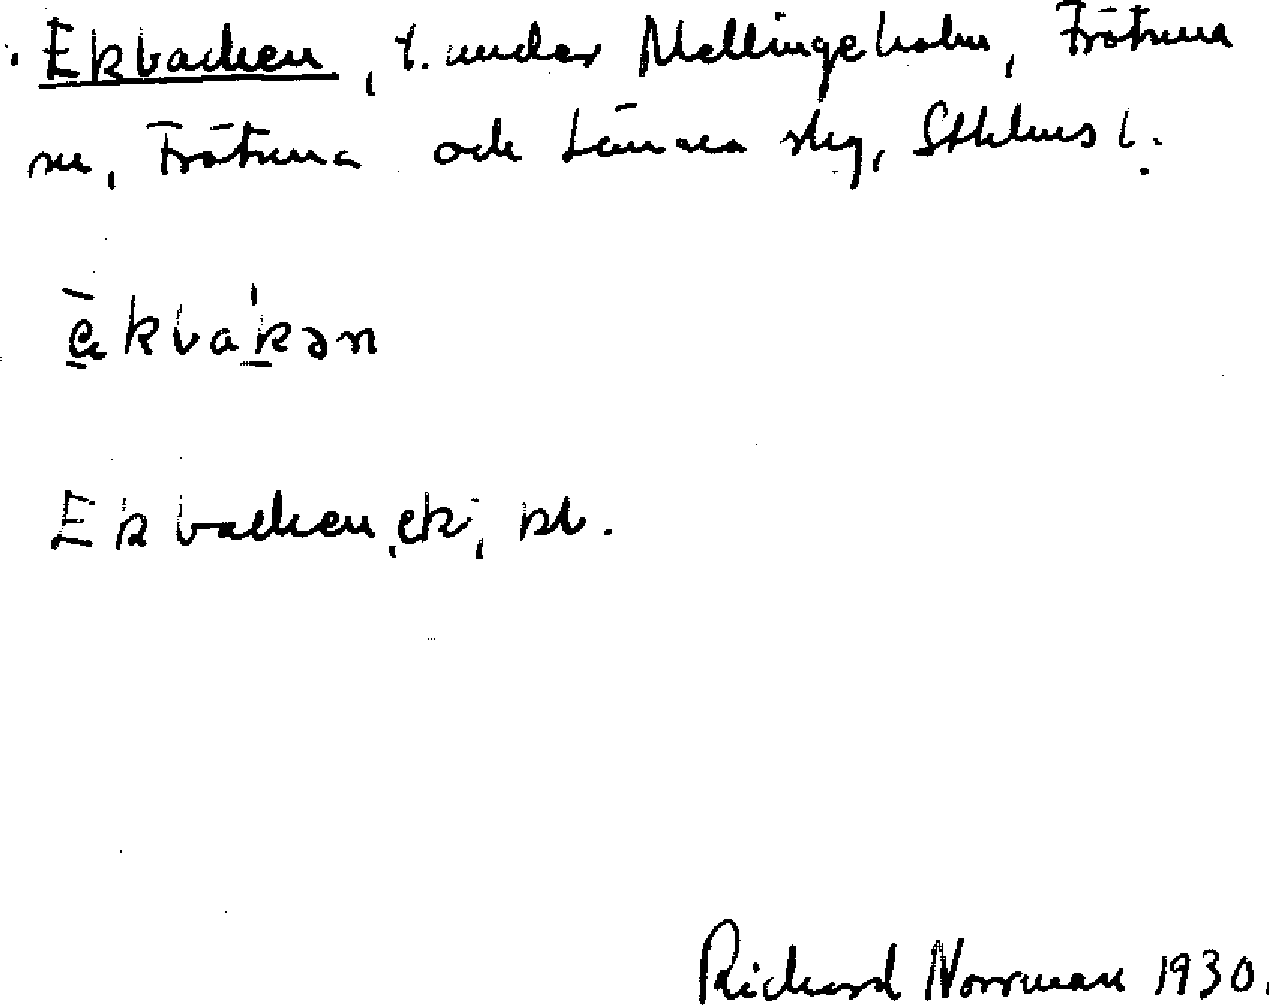 Ekbacken, t. under Mellingeholm, Frötuna
sn, Frötuna och Länna slg, Sthlms l.
è̱kbaḵən
Ekbacken, ek., kb.
Richard Norrman 1930.